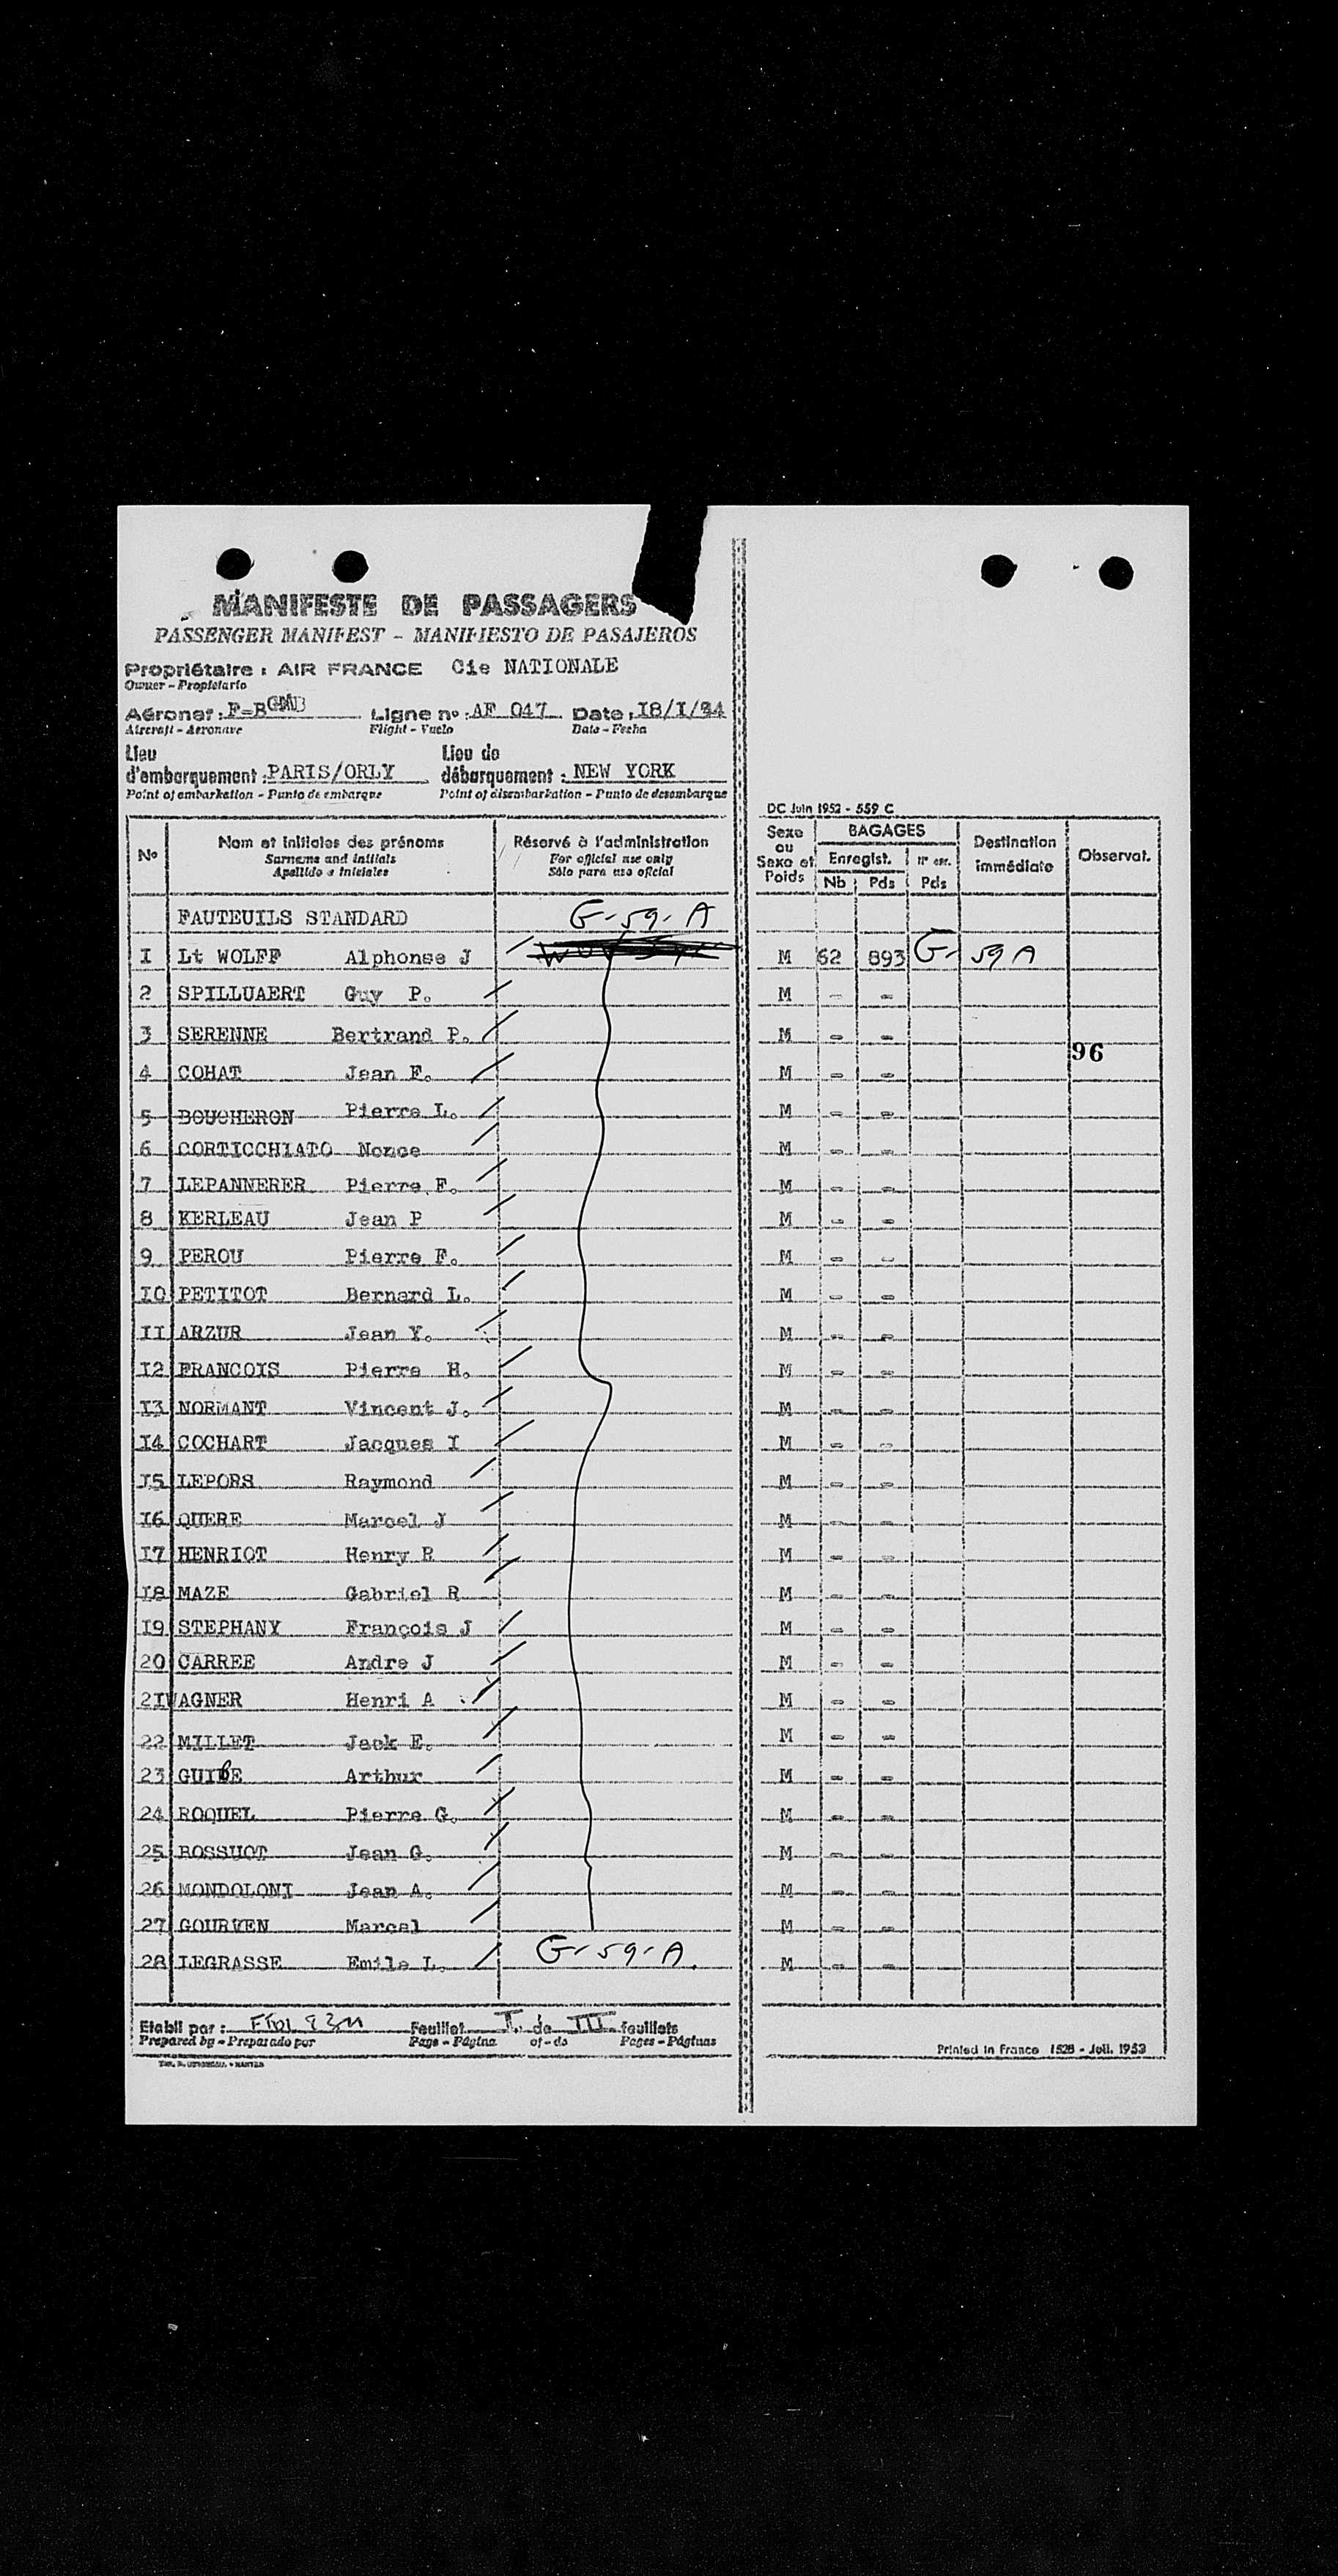 MANIFESTE DE PASSAGERS
PASSENGER MANIFEST - MANIFIESTO DE PASAJEROS
Propriétaire : AIR FRANCE Cie NATIONALE
Owner - Propietario
Aéronef : F-B Ligne n° : AF 047 Date : 18/I/54
Aircraft - Aeronave Flight - Vuelo Date - Fecha
Lieu d'embarquement : PARIS/ORLY Lieu de débarquement : NEW YORK
Point of embarkation - Punto de embarque Point of disembarkation - Punto de desembarque
DC Juin 1952 - 559 C
N° Nom et initiales des prénoms Réservé à l'administration Sexe ou Sexe et Poids BAGAGES Destination immédiate Observat.
Surname and initials For official use only Enregist. N° enr.
Apellido e iniciales Sólo para uso oficial Nb Pds Pds
FAUTEUILS STANDARD G-59-A
I Lt WOLFF Alphonse J M 62 893 G-59A
2 SPILLUAERT Guy P. M - -
3 SERENNE Bertrand P. M - -
96
4 COHAT Jean F. M - -
5 BOUCHERON Pierre L. M - -
6 CORTICCHIATO Nonce M - -
7 LEPANNERER Pierre F. M - -
8 KERLEAU Jean P M - -
9 PEROU Pierre F. M - -
IO PETITOT Bernard L. M - -
II ARZUR Jean Y. M - -
I2 FRANCOIS Pierre H. M - -
I3 NORMANT Vincent J. M - -
I4 COCHART Jacques I M - -
I5 LEPORS Raymond M - -
I6 QUERE Marcel J M - -
I7 HENRIOT Henry R M - -
I8 MAZE Gabriel R M - -
I9 STEPHANY François J M - -
20 CARREE Andre J M - -
2I WAGNER Henri A M - -
22 MILLET Jack E. M - -
23 GUIBE Arthur M - -
24 ROQUEL Pierre G. M - -
25 BOSSUOT Jean G. M - -
26 MONDOLONI Jean A. M - -
27 GOURVEN Marcel M - -
28 LEGRASSE Emile L. G-59-A. M - -
Etabli par : Feuillet I de III feuillets
Prepared by - Preparado por Page - Página of - de Pages - Páginas
Printed in France 1528 - Juil. 1953